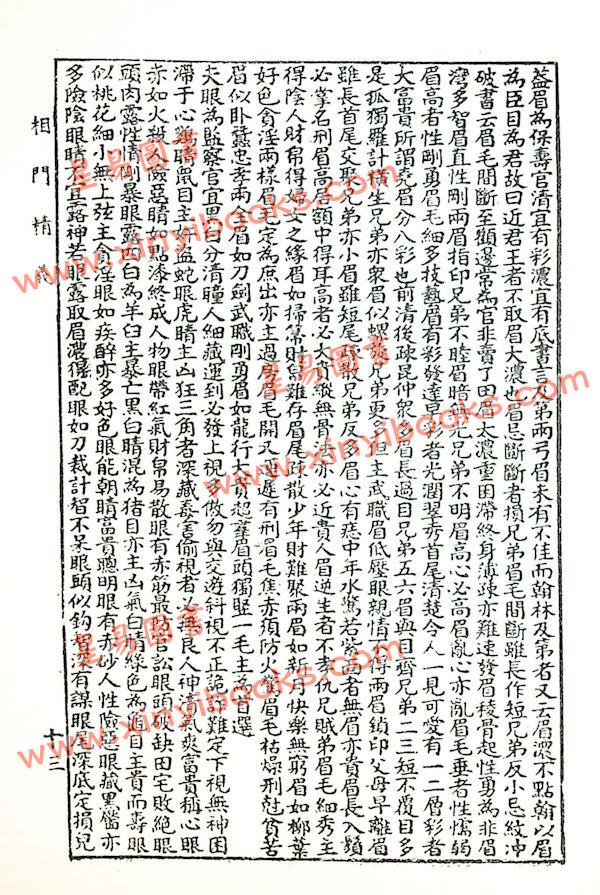 葢眉為保壽官清宜有彩濃宜有底書言及第兩弓眉未有不佳而翰林及弟者又云眉濃不點翰以眉
為臣目為君故曰近君王者不取眉大濃也眉忌斷斷者損兄弟眉毛間斷雖長作短兄弟反小忌紋冲
破書云眉毛間斷至顴邊常為官非賣了田眉太濃重困滯終身薄疎亦難速發眉稜骨起性勇為非眉
灣多智眉直性剛兩眉指印兄弟不睦眉暗無光兄弟不明眉高心必高眉亂心亦亂眉毛垂者性懦弱
眉高者性剛勇眉毛細多技藝眉有彩發達早彩者光潤翠秀首尾清楚令人一見可愛有一二層彩者
大富貴所謂堯眉分八彩也前清後疎昆仲衆多眉長過目兄弟五六眉與目齊兄弟二三短不覆目多
是孤獨羅計橫生兄弟亦衆眉似螺髮兄弟更多但主武職眉低壓眼親情不得兩眉鎖印父母早離眉
雖長首尾交聚兄弟亦小眉雖短尾疎散兄弟反多眉心有痣中年水驚若紫高者無眉亦貴眉長入鬢
必掌名刑眉高居額中得耳高者必大貴縱無骨法亦必近貴人眉逆生者不孝仇兄賊弟眉毛細秀主
得陰人財帛得婦女之緣眉如掃箒財帛難存眉尾疎散少年財難聚兩眉如新月快樂無窮眉如柳葉
好色貪淫兩樣眉毛定為庶出亦主過房眉毛開又 運遲有刑眉毛焦赤須防火 眉毛枯燥刑尅貧苦
眉似卧蠶忠孝兩全眉如刀劍武職剛勇眉如龍行大貴超羣眉頭獨豎一毛主 選
夫眼為監察官宜黑白分清瞳人細藏運到必發上視多傲勿與交遊斜視不正詭詐難定下視無神困
滯于心 睛鼠目主奸盜蛇眼虎睛主凶狂三角者深藏毒害偷視者必無良人神清氣爽富貴稱心眼
赤如火殺人險惡睛如點漆終成人物眼帶紅氣財帛易散眼有赤筋最防官訟眼頭破缺田宅敗絕眼
頭肉露性情剛暴眼露四白為羊目主暴亡黑白睛混為猪目亦主凶氣白睛綠色為道目主貴而壽眼
似桃花細小無上弦主貪淫眼如疾醉亦多好色眼能朝睛富貴聰明眼有赤砂人性險惡眼藏黑 亦
多險陰眼睛不宜露神若眼露取眉濃得配眼如刀裁計智不呆眼頭似鈎智深有謀眼毛深底定損兒
相門精義
十三
星易圖書
www.xinyibooks.com
星易圖書
www.xinyibooks.com
星易圖書
www.xinyibooks.com